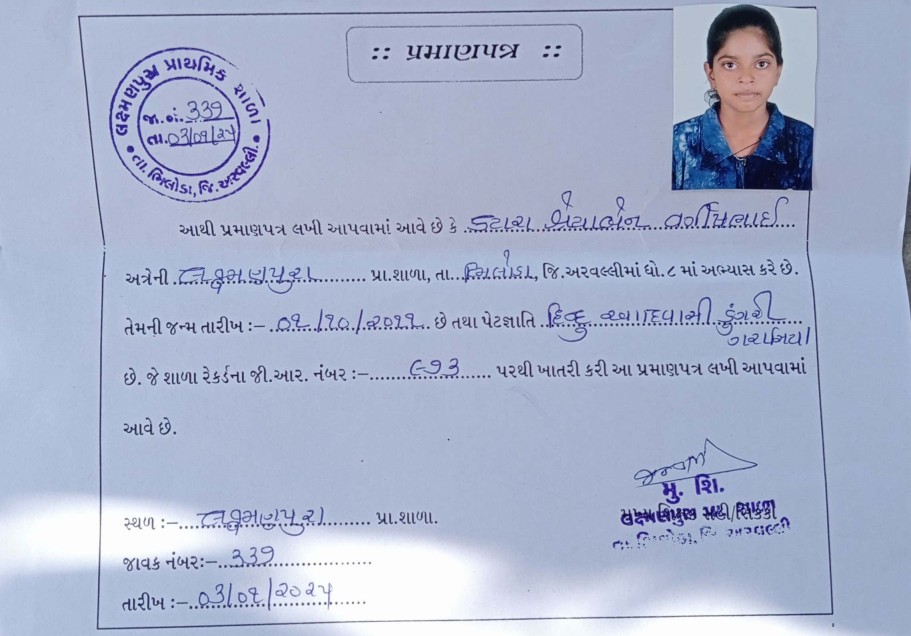 :: પ્રમાણપત્ર ::
લક્ષ્મણપુરા પ્રાથમિક શાળા
જા.નં. 339
તા. 03/01/25
તા. ભિલોડા, જિ. અરવલ્લી.
આથી પ્રમાણપત્ર લખી આપવામાં આવે છે કે કટારા
અત્રેની લક્ષ્મણપુરા પ્રા.શાળા, તા. ભિલોડા, જિ.અરવલ્લીમાં ધો.૮ માં અભ્યાસ કરે છે.
તેમની જન્મ તારીખ :- 01/10/2011 છે તથા પેટજ્ઞાતિ હિન્દુ આદિવાસી ડુંગરી
ગરાસિયા
છે. જે શાળા રેકર્ડના જી.આર. નંબર :- ૯૧૩ પરથી ખાતરી કરી આ પ્રમાણપત્ર લખી આપવામાં
આવે છે.
મુ. શિ.
તા. ભિલોડા, જિ. અરવલ્લી
સ્થળ :- લક્ષ્મણપુરા પ્રા.શાળા.
જાવક નંબર:- 339
તારીખ :- 03/01/2025